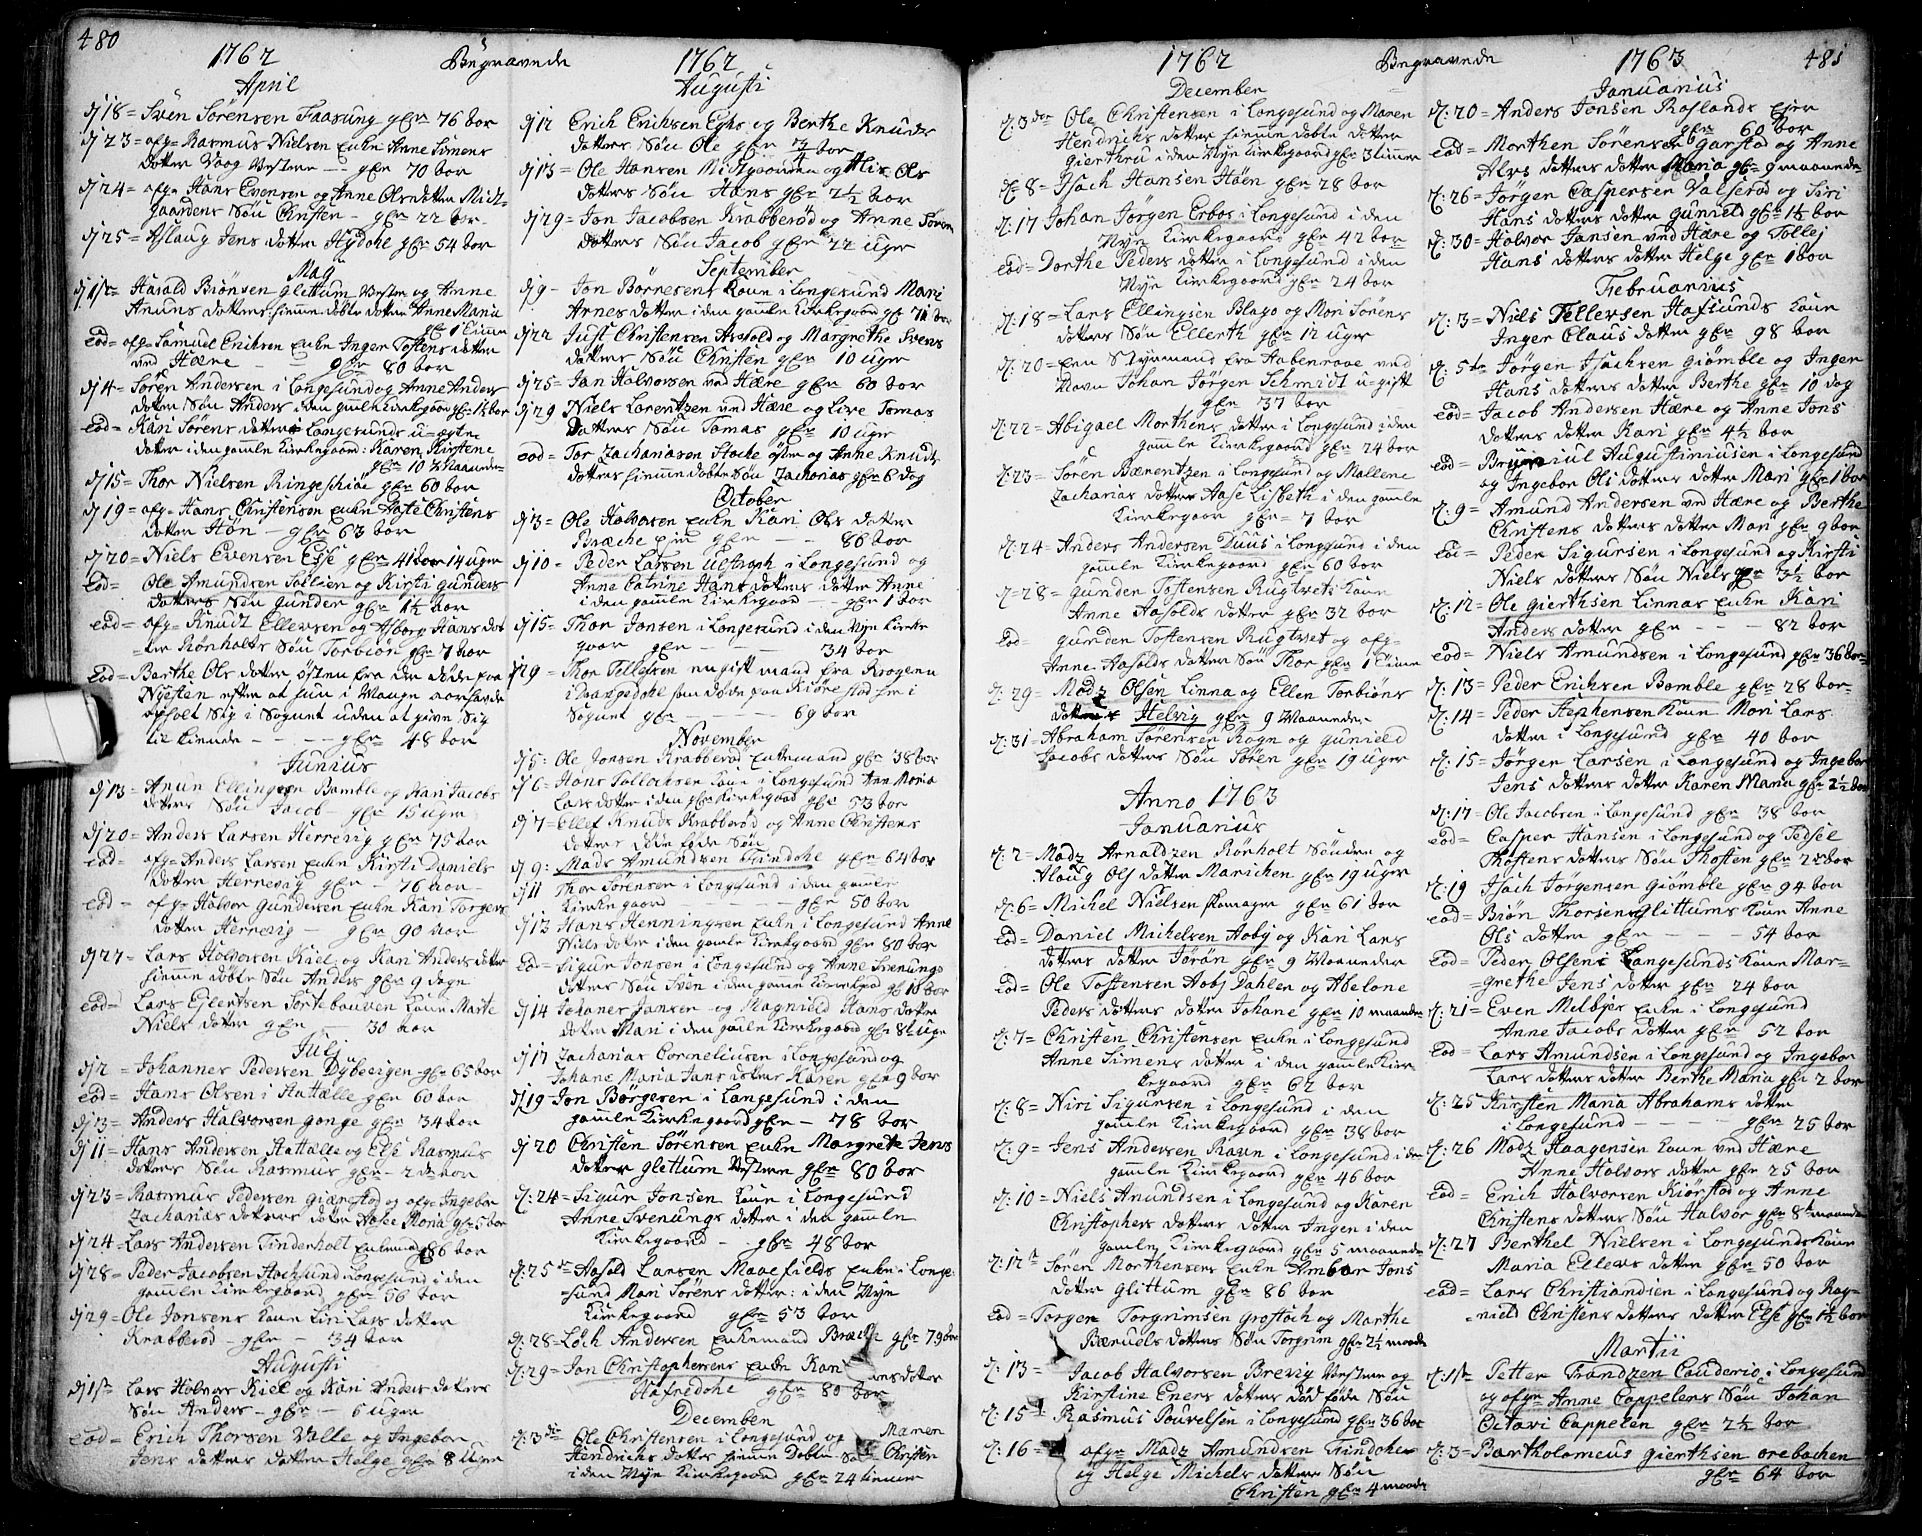 480
1762 Begravede 1762
April
d/18= Sven Sörensen Faasung gl 76 aar
d/23= afg= Rasmus Nielsen Enke Anne Simens
dotter Vaag Vestre — gl 70 aar
d/24= afg= Hans Evensen og Anne Olsdotter Midt-
gaardens Sön Christen — gl 22 aar
d/25= Aslaug Jens dotter Hydohl gl 54 aar
Maj
d/1ste= Harald Biönsen Glittum Vestre og Anne
Anuns dotters hiemme döbte dotter Anne Maria
gl 1 time
eod= afg= Samuel Erichsen Enke Inger Tostens dotter
ved Hære — gl 80 aar
d/4= Sören Andersen i Longesund og Anne Anders
dotter Sön Anders i den gamle Kirkegaard gl 1½ aar
eod= Kari Sörens dotter i Longesunds u-egte
dotter i den gamle Kirkegaard: Karen Kirstine
gl 10 Maaneder
d/15= Thor Nielsen Ringeschiöe gl 60 aar
d/19= afg= Hans Christensen Enke Aase Christens
dotter Hön — gl 63 aar
d/20= Niels Evensen Else gl 41 aar 14 uger
eod= Ole Amundsen Sollien og Kirsti Gunders
dotters Sön Gunder gl 1½ aar
eod= afg= Knudt Ellevsen og Asborg Hans dot
ter Rönholts Sön Torbiön gl 7 aar
eod= Barthe Ols dotter östen fra der döde paa
Niesten efter at hun i Mange aar havde
opholt Sig i Sognet uden at give Sig
til kiende — gl 48 aar
Junius
d/13= Anun Ellingsen Bamble og Kari Jacobs
dotters Sön Jacob — gl 15 uger
d/20= Anders Larsen Herrevig gl 75 aar
eod= afg= Anders Larsen Enke Kirsti Daniels
dotter Herrevig — gl 76 aar
eod= afg= Halvor Gundersen Enke Kari Torgers
dotter Herrevig — gl 90 aar
d/27= Lars Holversen Kiel og Kari Anders dotter
hiemme döbte Sön Anders gl 9 dage
eod= Lars Ejlertsen Sortebouven Kone Marte
Niels dotter gl — 30 aar
Julj
d/2= Johannes Pedersen Dybevigen gl 65 aar
eod= Hans Olsen i Hattælle gl 60 aar
d/3= Anders Halvorsen gonge gl 34 aar
d/11= Hans Andersen Hattælle og Else Rasmus
dotters Sön Rasmus gl — 2 aar
d/23= Rasmus Pedersen Giærestad og afg= Ingebor
Zacharias dotters dotter Aase Maria gl 5 aar
d/24= Lars Andersen Tinderholt Enkemand 86 aar
d/28= Peder Jacobsen Hochsund Longesund i den
gamle Kirkegaard gl 56 aar
d/29= Ole Jonsens Kone Liv Lars dotter
Krabberöd — gl — 34 aar
Augusti
d/1ste Lars Holvors Kiel og Kari Anders dotters
Sön Anders — gl — 6 uger
eod= Erich Thorsen Valle og Ingebor
Jens dotters dotter Helge gl 8 Uger
Augusti
d/12 Erich Erichsen Eghs og Berthe Knuds
dotters Sön Ole gl ¾ aar
d/13= Ole Hansen Midtgaarden og Alis Ols
dotters Sön Hans gl 2½ aar
d/29= Jon Jacobsen Krabberöd og Anne Sören
dotters Sön Jacob gl 22 uger
September
d/9= Jon Börresens Kone i Longesund Mari
Arnes dotter i den gamle Kirkegaard gl 71 aar
d/22 Just Christensen Aasold og Margrethe Svens
dotters Sön Christen gl 10 uger
d/25= Jan Halvorsen ved Hære gl 60 aar
d/29 Niels Larentzen ved Hære og Live Tomas
dotters Sön Tomas gl 10 uger
eod= Tor Zachariasen Stoche östre og Anne Knuds
dotters hiemme döbte Sön Zacharias gl 6 dag
October
d/3= Ole Halvorsen Enke Kari Ols dotter
Bræche Eje gl — 86 aar
d/10= Peder Larsen Uestroph i Longesund og
Anne Catrine Hans dotters dotter Anne
i den gamle Kirkegaard — gl 1 aar
d/15= Thor Jonsen i Longesund i den Nye Kirke
gaar gl — 34 aar
d/29= Thor Tellefsen en gift mand fra Krogene
i Drangedohl som döde paa Kiörestad her i
Sognet gl — 69 aar
November
d/5= Ole Jonsen Krabberöd Enkemand gl 38 aar
d/6= Hans Tallachsen Kone i Longesund Ane Maria
Lars dotter i den gl Kirkegaard gl 53 aar
d/7= Ellef Knuds Krabberöd og Anne Christens
dotters död föde Sön
d/9: Mads Amundsen Trindohl gl 64 aar
d/11 Thor Sörensen i Longesund i den gamle
Kirkegaard — gl 50 aar
d/12 Hans Henningsen Enke i Longesund Anne
Niels doter i den gamle Kirkegaard gl 80 aar
eod= Sigur Jonsen i Longesund og Anne Svenungs
dotters Sön Sven i den gamle Kirkegard gl 10 aar
d/14 Johanes Jansen og Ragnield Hans dotter
doter Mari i den gamle Kirkegaard gl 8 Uger
d/17 Zacharias Corneliusen i Longesund og
Johane Maria Jans doters Karen gl 9 aar
d/19= Jon Borgesen i Langesund i den
gamle Kirkegaard gl — 78 aar
d/20 Christen Sörensen Enke Margrete Jens
doter Glittum Vestre gl 80 aar
d: 24= Sigur Jonsen Kone i Longesund
Anne Svenungs dotter i den gamle
Kirkegaard — gl 48 aar
d: 25de= Aasold Larsen Maaesields Enke i Longe-
sund Mari Sörens dotter: i den Nye
Kirkegaard gl 53 aar
d: 28= Loch Andersen Enkemand Bræche gl 79 aar
d: 29= Jan Christophersens Enke Kari
Hafredohl gl 80 aar
December
d: 3de= Ole Christensen i Longesund og Maren
Hendrichs dotter hiemme Döbte Sön Christen
i den Nye Kirkegaard gl 24 timer
1762 Begravede 1763 481
December
d: 3de Ole Christensen i Longesund og Maren
Hendrichs dotter hiemme döbte dotter
Gierthru i den Nye Kirkegaard gl 3 timer
d: 8= Isach Hansen Höen gl 28 aar
d: 17 Johan Jörgen Erbos i Longesund i den
Nye Kirkegaard gl 42 aar
eod= Dorthe Peders dotter i Longesund i den
Nye Kirkegaard gl 24 aar
d: 18= Lars Ellingsen Blago og Mari Sörens
dotters Sön Ellerth gl 12 uger
d: 20= En Styrmand fra Aabenraae ved
Navn Johan Jörgen Schmidt ugift
gl 37 aar
d: 22= Abigael Morthens dotter i Longesund i den
gamle Kirkegaard gl 24 aar
d: 23= Sören Bærentzen i Longesund og Mallene
Zacharias dotter Aase Lisbeth i den gamle
Kirkegaar gl 7 aar
d: 24= Anders Andersen Duus i Longesund i den
gamle Kirkegaard gl 60 aar
d= 28= Gunder Tostensen Rugtvets Kone
Anne Aasolds dotter gl 32 aar
eod= Gunder Tostensen Rugtvet og afg=
Anne Aasolds dotter Sön Thor gl 1 time
d: 29= Madz Olsen Linna og Ellen Torbiöns
dotter Helvig gl 9 Maaneder
d: 31= Abraham Sörensen Rogn og Gunield
Jacobs dotters Sön Sören gl 19 uger
Anno 1763
Januarius
d: 2= Madz Arnaldzen Rönholt Söndre og
Aloug Ols dotter Marichen gl 19 uger
d: 6= Michel Nielsen skomager gl 61 aar
eod= Daniel Michelsen Aaby og Kari Lars
dotters dotter Jörön gl 9 Maaneder
eod= Ole Tostensen Aobj Dahlen og Abelone
Peders dotters dotter Johane gl 10 maaneder
d: 7= Christen Christensen Enke i Longesund
Anne Simens dotter i den gamle Kirk-
kegaard gl 62 aar
d: 8= Niri Sigursen i Longesund i den
gamle Kirkegaard gl 38 aar
d: 9= Jens Andersen Ravn i Longesund i den
gamle Kirkegaard gl 46 aar
d: 10= Niels Amundsen i Longesund og Karen
Christophers dotters dotter Ingen i den
gamle Kirkegaard gl 5 maaneder
d: 12te Sören Morthensens Enke Ambor Jons
dotter Glittum gl 86 aar
eod= Torger Torgrimsen Grostoch og Marthe
Bæruels dotters Sön Torgrim gl 2½ maaned
d: 13= Jacob Halvorsen Brevig Vestre og
Kirstine Eners dotters död föde Sön
d: 15= Rasmus Pouvelsen i Longesund gl 36 aar
d: 16= afgr Madz Amundsen Trindohl
og Helge Michels dotters Sön
Christen gl 4 maaned
Januarius
d: 20= Anders Jensen Raslands Ejer
gl 60 aar
eod= Morthen Sörensen Garstad og Anne
Alvs dotters dotter Maria gl 9 maaneder
d: 26= Jörgen Caspersen Valleröd og Siri
Hans dotters dotter Gunield gl 1½ aar
d: 30= Halvor Jansen ved Hære og Tollej
Hans dotters dotter Helge gl 1 aar
Februarius
d: 3= Niels Tellevsen Hafsunds Kone
Inger Claus dotter gl 98 aar
d: 5te Jörgen Isachsen Giömble og Inger
Hans dotters dotter Berthe gl 10 dag
eod= Jacob Andersen Hære og Anne Jons
dotters dotter Kari gl 4½ aar
eod= Augustiniusen i Longesund
og Ingebor Ols dotters dotter Mari gl 1 aar
d: 9= Amund Andersen ved Hære og Berthe
Christens dotters dotter Mari gl 9 aar
eod= Peder Sigursen i Longesund og Kirsti
Niels dotters Sön Niels gl 3½ aar
d: 12= Ole Gierthsen Linnas Enke Kari
Anders dotter gl — 82 aar
eod= Niels Amundsen i Longesund gl 36 aar
d: 13= Peder Erichsen Bamble gl 28 aar
d: 14= Peder Stephensen Kone Mari Lars
dotter i Longesund gl 40 aar
d: 15= Jörgen Larsen i Longesund og Ingebor
Jens dotters dotter Karen Maria gl 2½ aar
d: 17= Ole Jacobsen i Longesund gl 38 aar
eod= Casper Hansen i Longesund og Tedsel
Thostens dotters Sön Thosten gl 2 aar
d: 19 Isach Jörgensen Giömble gl 94 aar
eod= Biön Thorsens Glittums Kone Anne
Ols dotter gl — 54 aar
eod= Peder Olsen i Langesunds Kone Mar-
grethe Jens dotter gl 24 aar
d: 21= Even Melbyes Enke i Longesund
Anne Jacobs dotter gl 52 aar
eod= Lars Amundsen i Longesund og Ingebor
Lars dotters dotter Berthe Maria gl 2 aar
d: 25 Kirsten Maria Abrahams dotter
i Longesund — gl 25 aar
d: 26 Madz Haagensen Kone ved Hære
Anne Holvors dotter gl 25 aar
eod= Erich Halvorsen Kiörstad og Anne
Christens dotters Sön Halvor gl 8 maaneder
d: 27 Berthel Nielsen i Longesunds Kone
Maria Ellevs dotter gl 50 aar
eod= Lars Christiandsen i Longesund og Rag-
nield Christens dotters dotter Else gl 1½ aar
Martii
d: 1ste Petter Trandzen Couderio i Longesund
og afgr Anne Cappelens Sön Johan
Octavi Cappelen gl 2½ aar
d: 3= Bartholomeus Gierthsen Orebachen
gl 64 aar